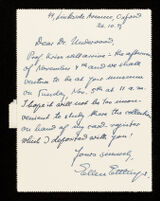 Oxford
Dear Dr. Underwood,
Prof. will arrive in the afternoon
of November 4th and we shall
venture to be at your museum
on Tuesday, Nov. 5th at 11 a.m.
I hope it will not be too incon-
venient to study there the collection
on hand of my card register
which I deposited with you!
Yours sincerely,
Ellen Ettlinger